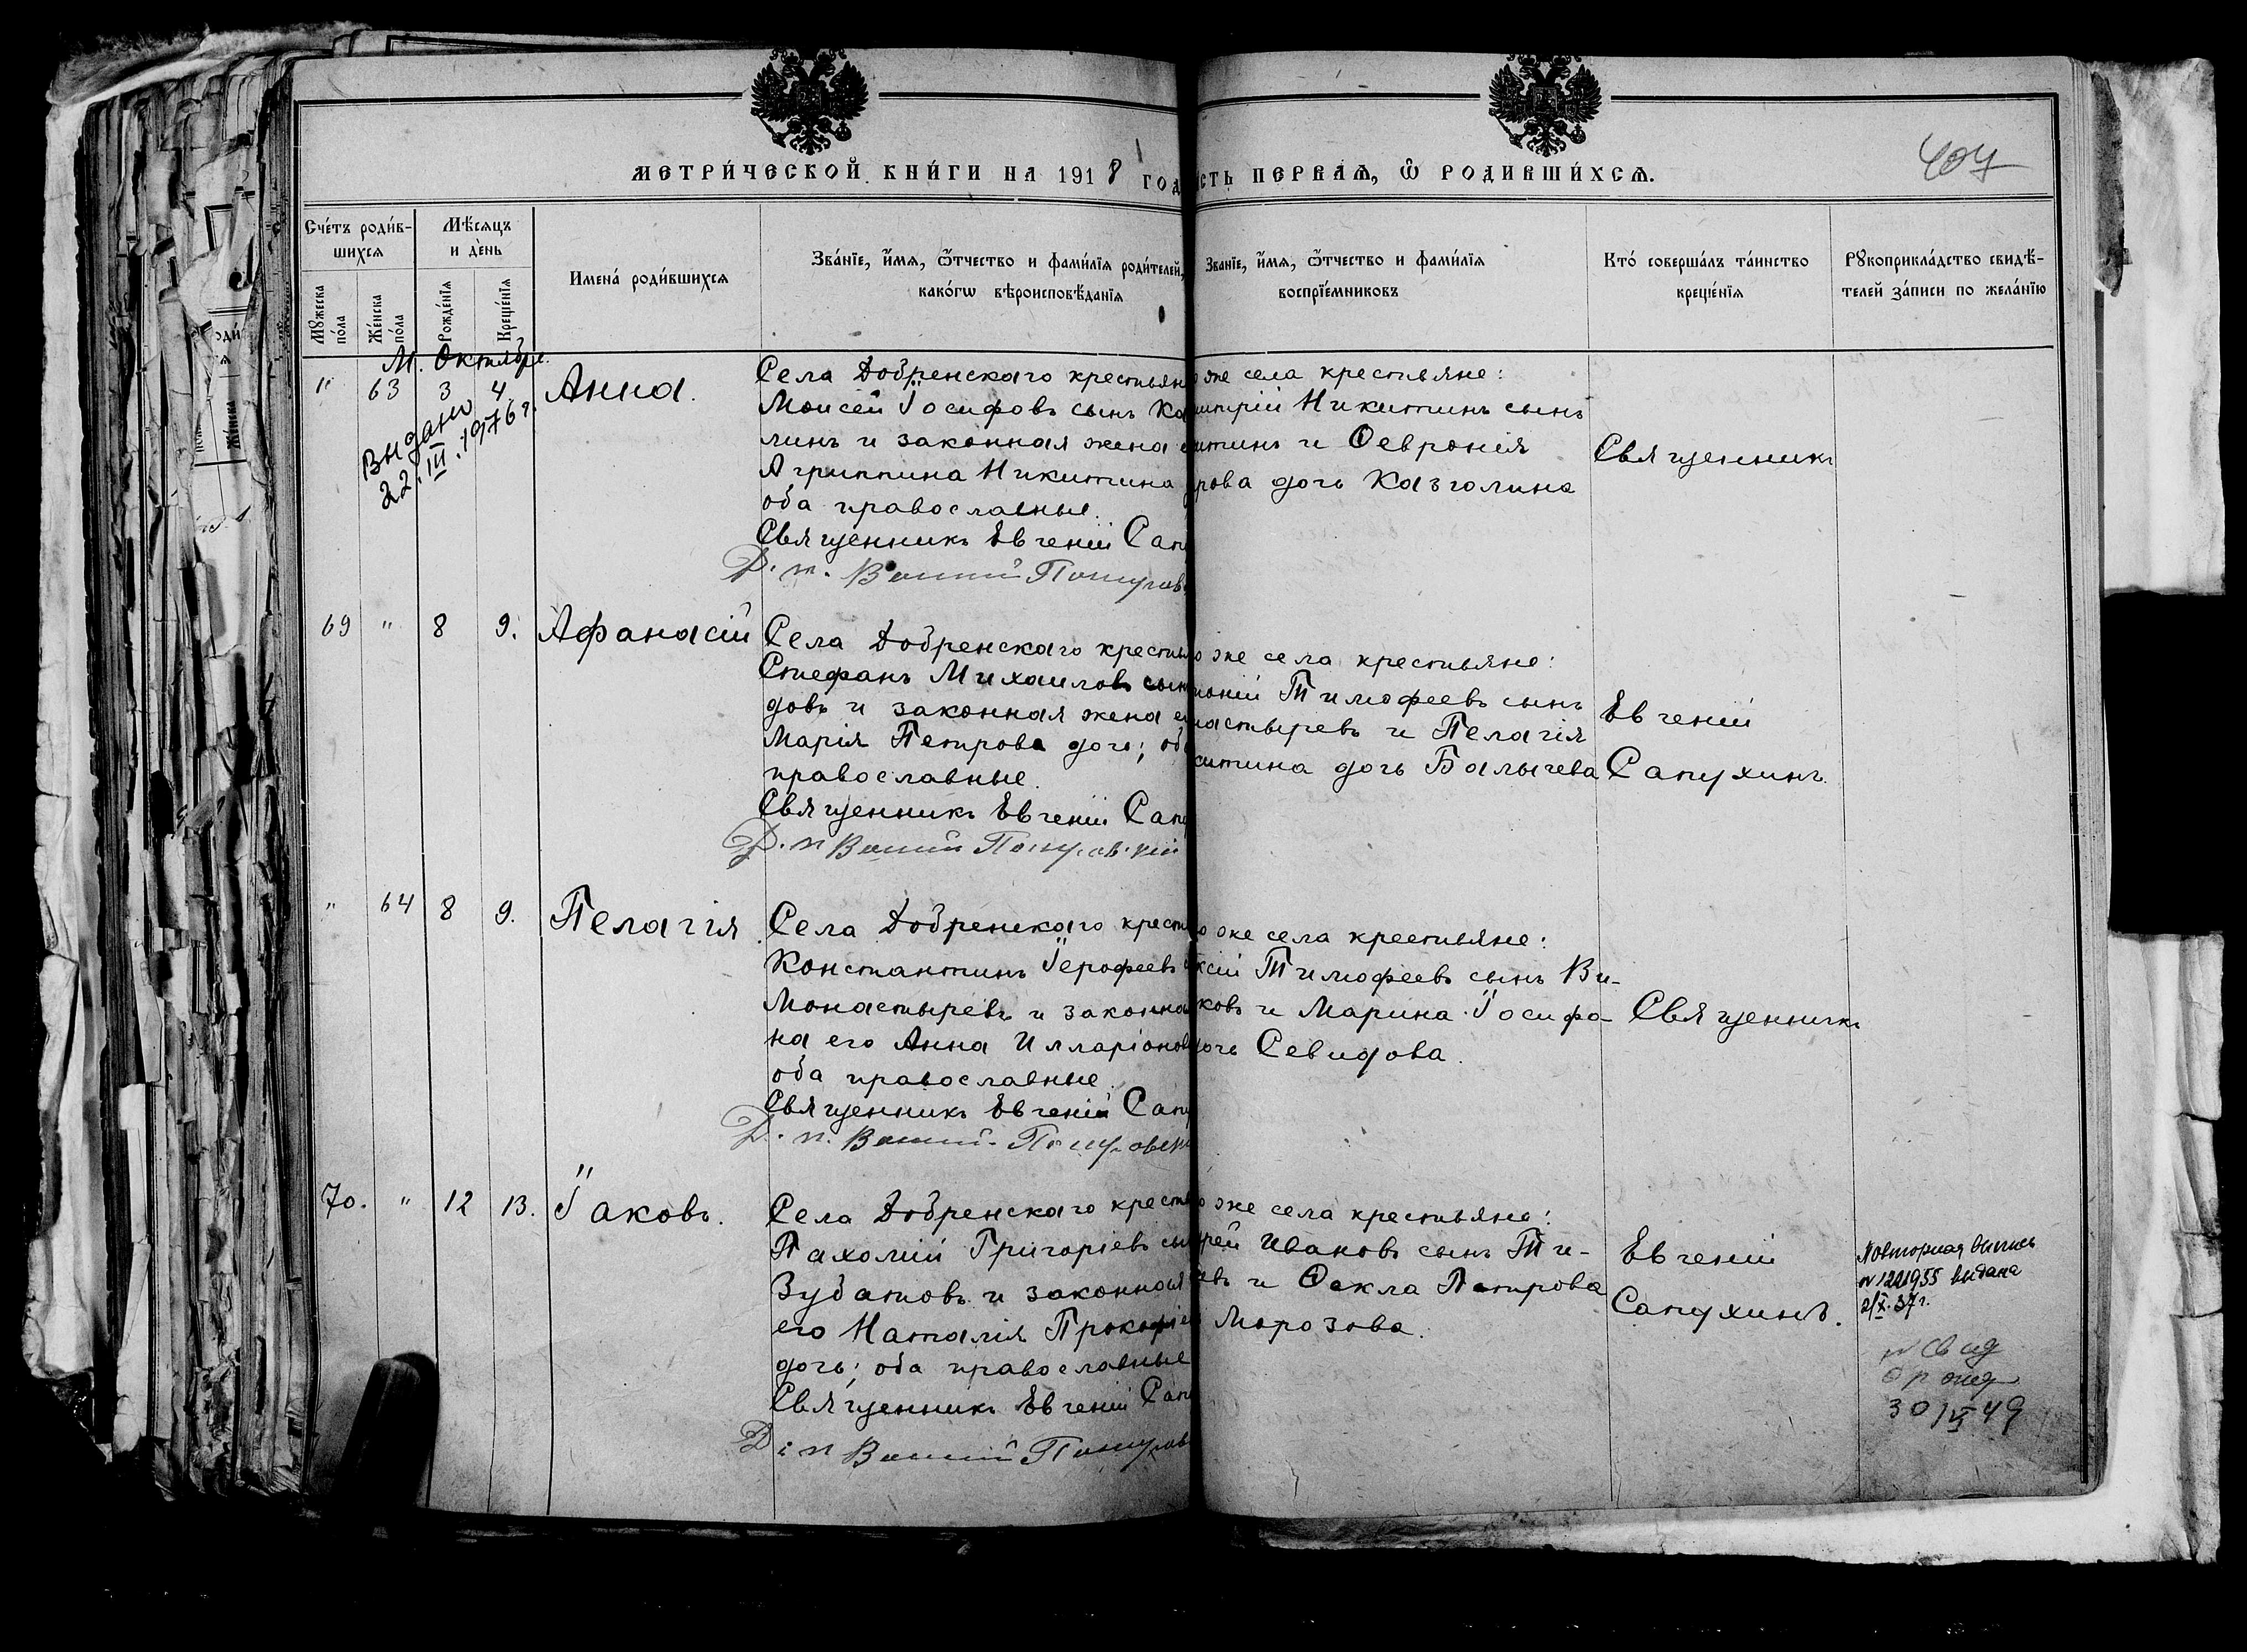 МЕТРИ́ЧЕСКОЙ КНИ́ГИ НА 1918 ГОД
СТЬ ПЕРВАѦ, Ѡ҆ РОДИВШИ́ХСѦ.
Сче́тъ роди́в-
шихсѧ
Мѣ́сѧцъ
и де́нь
Мꙋ́жеска
по́ла
Же́нска
по́ла
Рожде́нїѧ
Креще́нїѧ
Имена̀ роди́вшихсѧ
Зва́нїе, и҆́мѧ, ѻ҆́тчество и фами́лїѧ роди́телей,
како́гѡ вѣроисповѣ́данїѧ
Зва́нїе, и҆́мѧ, ѻ҆́тчество и фами́лїѧ
воспрїе́мниковъ
Кто̀ соверша́лъ та́инство
креще́нїѧ
Рꙋкоприкла́дство свидѣ́-
телей за́писи по жела́нїю
М. Октябрь.
" 63 3 4. Анна.
Выдано
22.III.1976 г.
Села Добренскаго крестьян
Моисей Іосифовъ сынъ Ка
линъ и законная жена е
Агриппина Никитина
оба православные.
Священникъ Евгеній Сапу
Д. п.
о же села крестьяне:
митрій Никитинъ сынъ
итинъ и Февронія
рова дочь Казголина
Священникъ
69 " 8 9. Афанасій
Села Добренскаго крестья
Стефанъ Михаиловъ сын
довъ и законная жена е
Марія Петрова дочь; об
православные.
Священникъ Евгеній Сапу
Д. п
о же села крестьяне:
оній Тимофеевъ сынъ
настыревъ и Пелагія
итина дочь Балычева
Евгеній
Сапухинъ.
" 64 8 9. Пелагія.
Села Добренскаго крест
Константинъ Іерофеевъ
Монастыревъ и законна
на его Анна Илларіонов
оба православные.
Священникъ Евгеній Сапу
Д. п.
о же села крестьяне:
ксій Тимофеевъ сынъ Ви-
ковъ и Марина Іосифо-
дочь Севидова.
Священникъ
70. " 12 13. Іаковъ.
Села Добренскаго крест
Пахомій Григоріевъ сы
Зубатовъ и законная
его Наталія Прокофіев
дочь; оба православные
Священникъ Евгеній Сапу
Д. п
о же села крестьяне:
рей Ивановъ сынъ Ти-
евъ и Фекла Петрова
Морозова.
Евгеній
Сапухинъ.
Повторная выпись
№ 1221955 выдана
2/X.37 г.